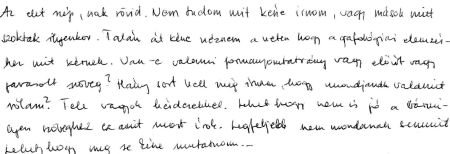 Az élet szép, csak rövid. Nem tudom mit kéne írnom, vagy mások mit
szoktak ilyenkor. Talán át kéne néznem a neten hogy a grafológiai elemzés-
hez mit kérnek. Van-e valami formanyomtatvány vagy előírt vagy
javasolt szöveg? Hány sort kell még írnom, hogy mondjanak valamit
rólam? Tele vagyok kérdésekkel. Lehet hogy nem is jó a
szöveghez ez amit most írok. Legfeljebb nem mondanak semmit
Lehet, hogy meg se kéne mutatnom...